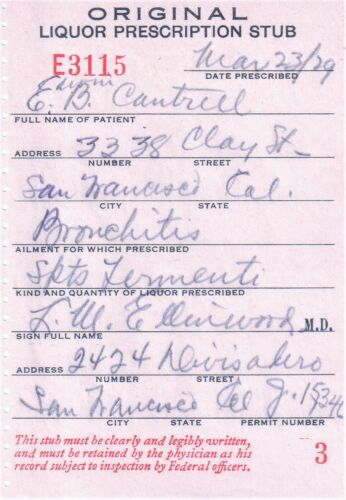 ORIGINAL
LIQUOR PRESCRIPTION STUB
E3115
Mar 23/29
DATE PRESCRIBED
Edwin
E. B. Cantrell
FULL NAME OF PATIENT
3338 Clay St
ADDRESS NUMBER STREET
San Francisco Cal.
CITY STATE
Bronchitis
AILMENT FOR WHICH PRESCRIBED
Spts Fermenti
KIND AND QUANTITY OF LIQUOR PRESCRIBED
L. M. Ellinwood M.D.
SIGN FULL NAME
2424 Divisadero
ADDRESS NUMBER STREET
San Francisco Cal
CITY STATE PERMIT NUMBER
This stub must be clearly and legibly written,
and must be retained by the physician as his
record subject to inspection by Federal officers.
3